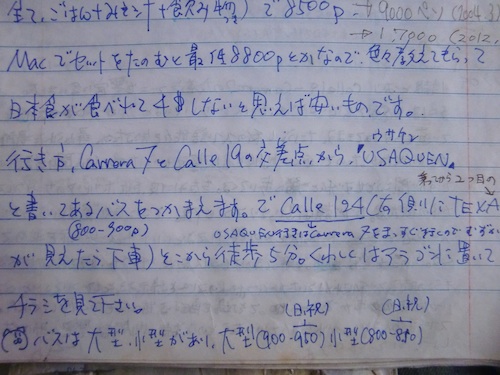 全て、ごはん+みそ汁+飲み物で8500p → 9000ペソ (2004.3)
→ 17900 (2012.
Macでセットをたのむと最低8800pとかなので、色々考えてもらって
日本食が食べれて4$しないと思えば安いものです。
行き方、Carrera 7とCalle 19の交差点から、"USAQUEN"
ウサケン
乗ってから2つ目の
と書いてあるバスをつかまえます。で Calle 124 (右側にTEXA
(800-900p)
USAQUEN行きはCarrera 7をまっすぐ行くので
が見えたら下車) そこから徒歩5分。くわしくはアラゴンに置いて
チラシを見て下さい。
(日、祝) (日、祝)
バスは大型、小型があり、大型(900-950) 小型(800-850)